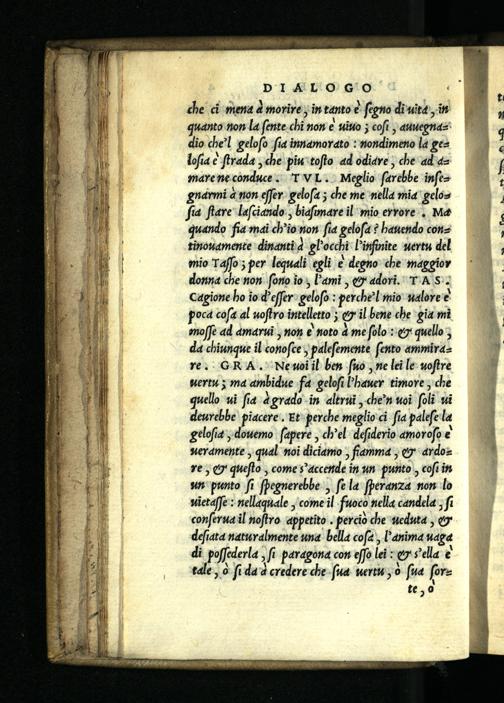 DIALOGO
che ci mena à morire, in tanto è segno di uita, in
quanto non la sente chi non è uiuo; cosi, auuegna=
dio che'l geloso sia innamorato: nondimeno la ge=
losia è strada, che piu tosto ad odiare, che ad a=
mare ne conduce. TVL. Meglio sarebbe inse=
gnarmi à non esser gelosa; che me nella mia gelo=
sia stare lasciando, biasimare il mio errore. Ma
quando fia mai ch'io non sia gelosa? hauendo con=
tinouamente dinanti à gl'occhi l'infinite uertu del
mio Tasso; per lequali egli è degno che maggior
donna che non sono io, l'ami, & adori. TAS.
Cagione ho io d'esser geloso: perche'l mio ualore è
poca cosa al uostro intelletto; & il bene che gia mi
mosse ad amarui, non è noto à me solo: & quello,
da chiunque il conosce, palesemente sento ammira=
re. GRA. Ne uoi il ben suo, ne lei le uostre
uertu; ma ambidue fa gelosi l'hauer timore, che
quello ui sia à grado in altrui, che'n uoi soli ui
deurebbe piacere. Et perche meglio ci sia palese la
gelosia, douemo sapere, ch'el desiderio amoroso è
ueramente, qual noi diciamo, fiamma, & ardo=
re, & questo, come s'accende in un punto, cosi in
un punto si spegnerebbe, se la speranza non lo
uietasse: nellaquale, come il fuoco nella candela, si
conserua il nostro appetito. perciò che ueduta, &
desiata naturalmente una bella cosa, l'anima uaga
di possederla, si paragona con esso lei: & s'ella è
tale, ò si da à credere che sua uertu, ò sua sor=
te, ò